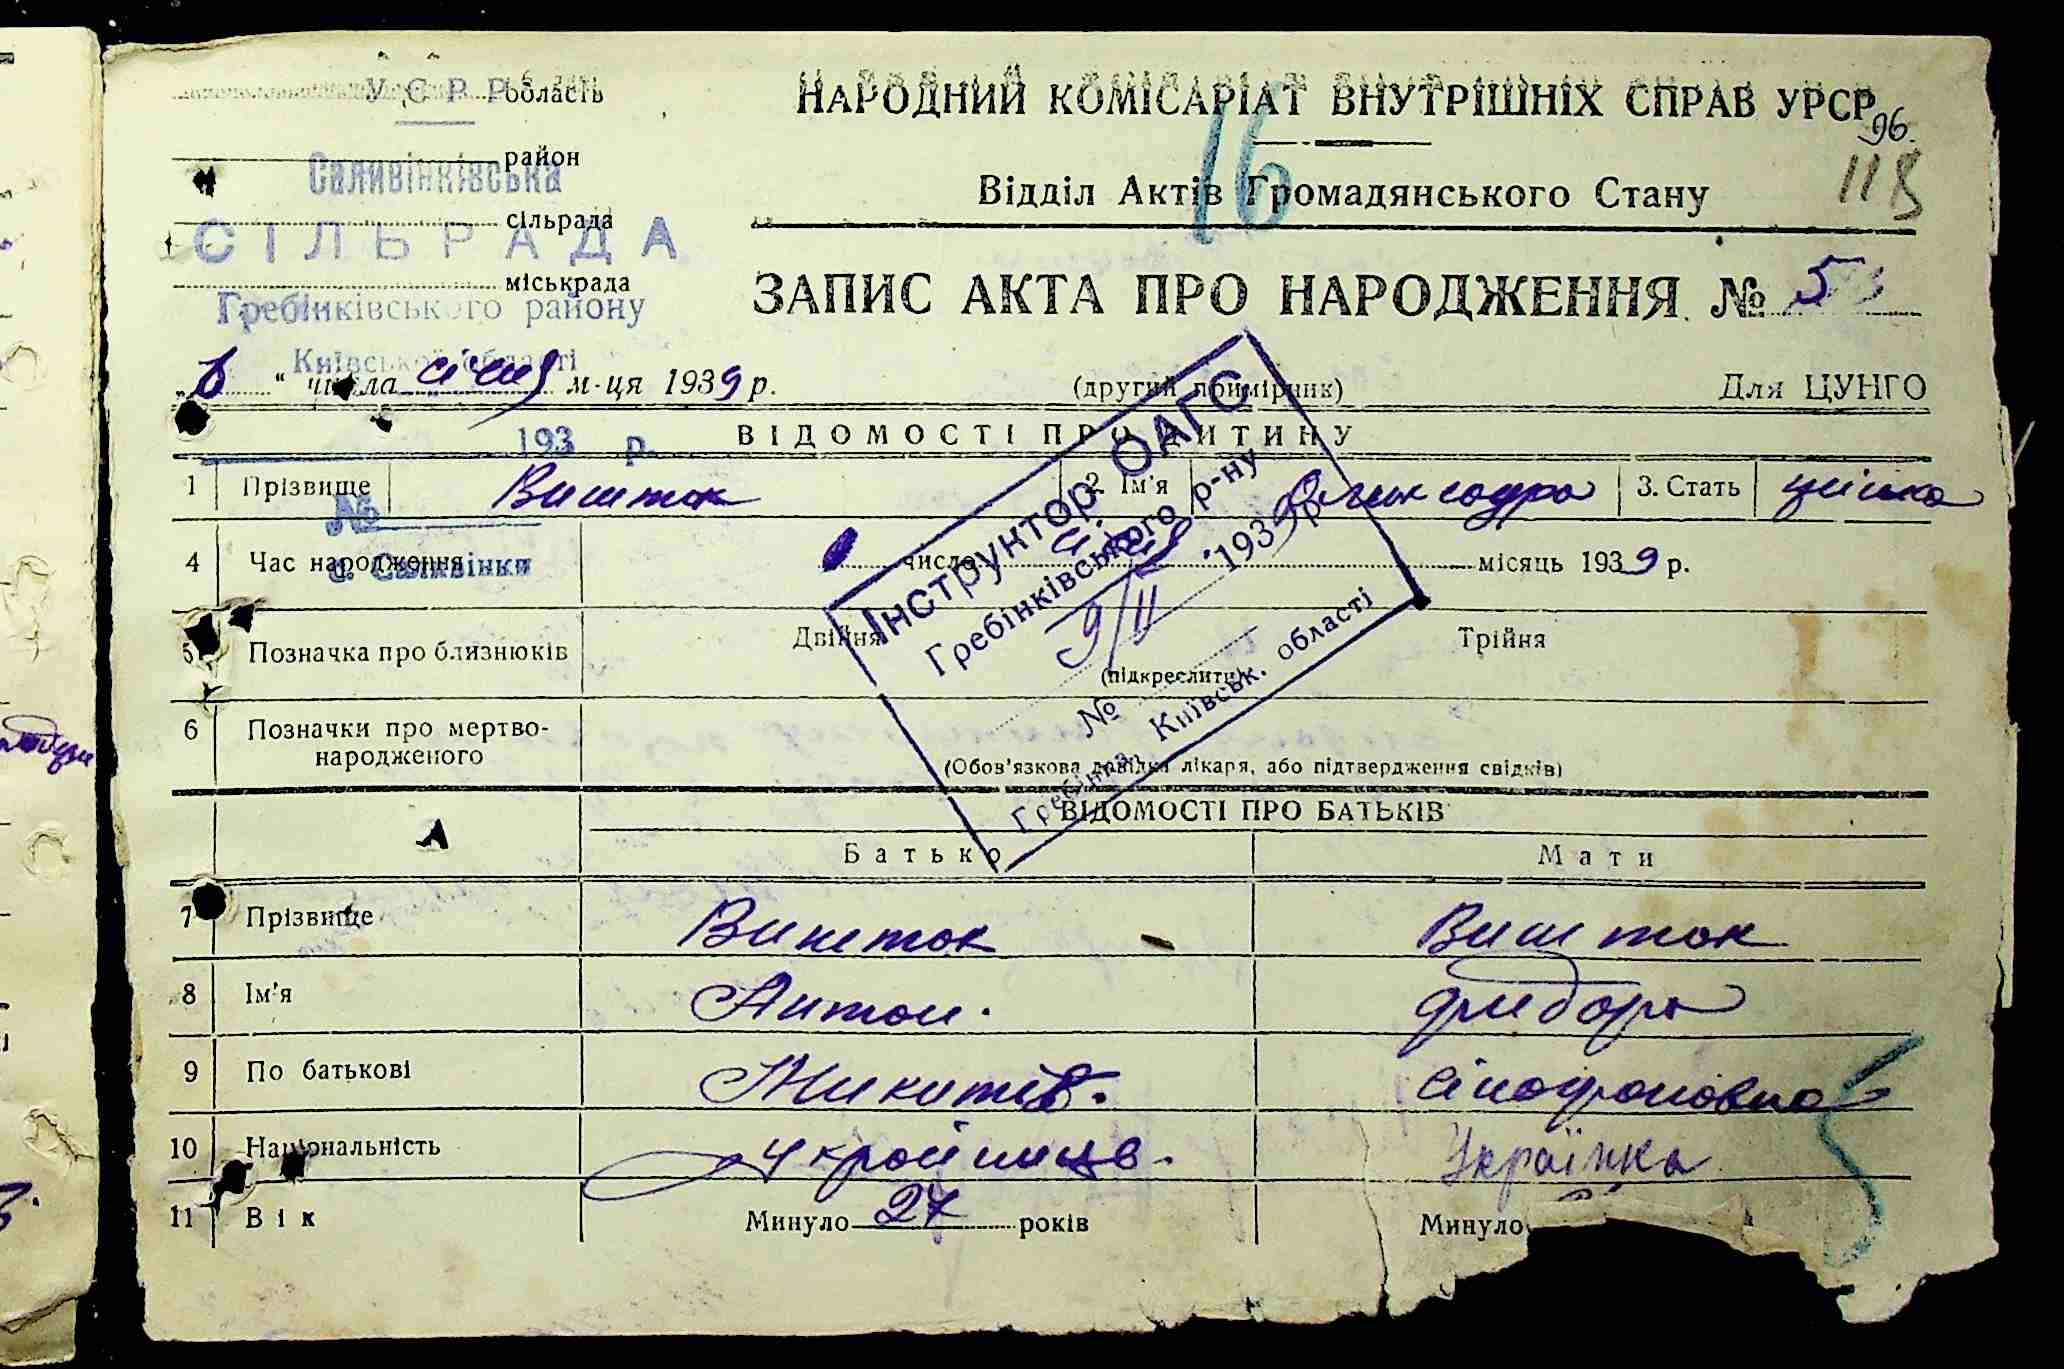 У.С.Р.Р. область
НАРОДНИЙ КОМІСАРІАТ ВНУТРІШНІХ СПРАВ УРСР
96.
район
Саливінківська
16
Відділ Актів Громадянського Стану
118
сільрада
СІЛЬРАДА
міськрада
Гребінківського району
ЗАПИС АКТА ПРО НАРОДЖЕННЯ № 5
Київської області
"6" числа січня м-ця 1939 р.
(другий примірник)
Для ЦУНГО
193 р.
ВІДОМОСТІ ПРО ДИТИНУ
1 Прізвище Вишток 2. Ім'я Олександра 3. Стать жіноча
№
4 Час народження число січня місяць 1939 р.
с. Саливінки
Інструктор ОАГС
Гребінківського р-ну
9/II 1939 р.
№
Гребінка, Київськ. області
5 Позначка про близнюків Двійня Трійня
(підкреслити)
6 Позначки про мертво-
народженого
(Обов'язкова довідка лікаря, або підтвердження свідків)
А
ВІДОМОСТІ ПРО БАТЬКІВ
Батько Мати
7 Прізвище Вишток Вишток
8 Ім'я Антон.
9 По батькові Микитів. Сінофоновна
10 Національність Українців. Українка
11 Вік Минуло 27 років Минуло